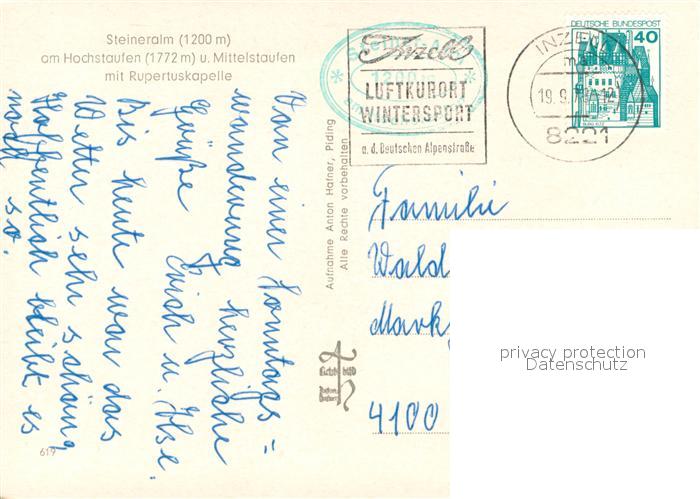 Steineralm (1200 m)
am Hochstaufen (1772 m) u. Mittelstaufen
mit Rupertuskapelle
Inzell
LUFTKURORT
WINTERSPORT
a. d. Deutschen Alpenstraße
1200 m
INZELL
19. 9. 12
8221
DEUTSCHE BUNDESPOST
40
Von einer Sonntags=
wanderung herzliche
Grüße Erich u. Ilse.
Bis heute war das
Wetter sehr schön,
Hoffentlich bleibt es
noch so.
Aufnahme Anton Hafner, Piding
Alle Rechte vorbehalten
Familie
Wald
Mark
4100
privacy protection
Datenschutz
619